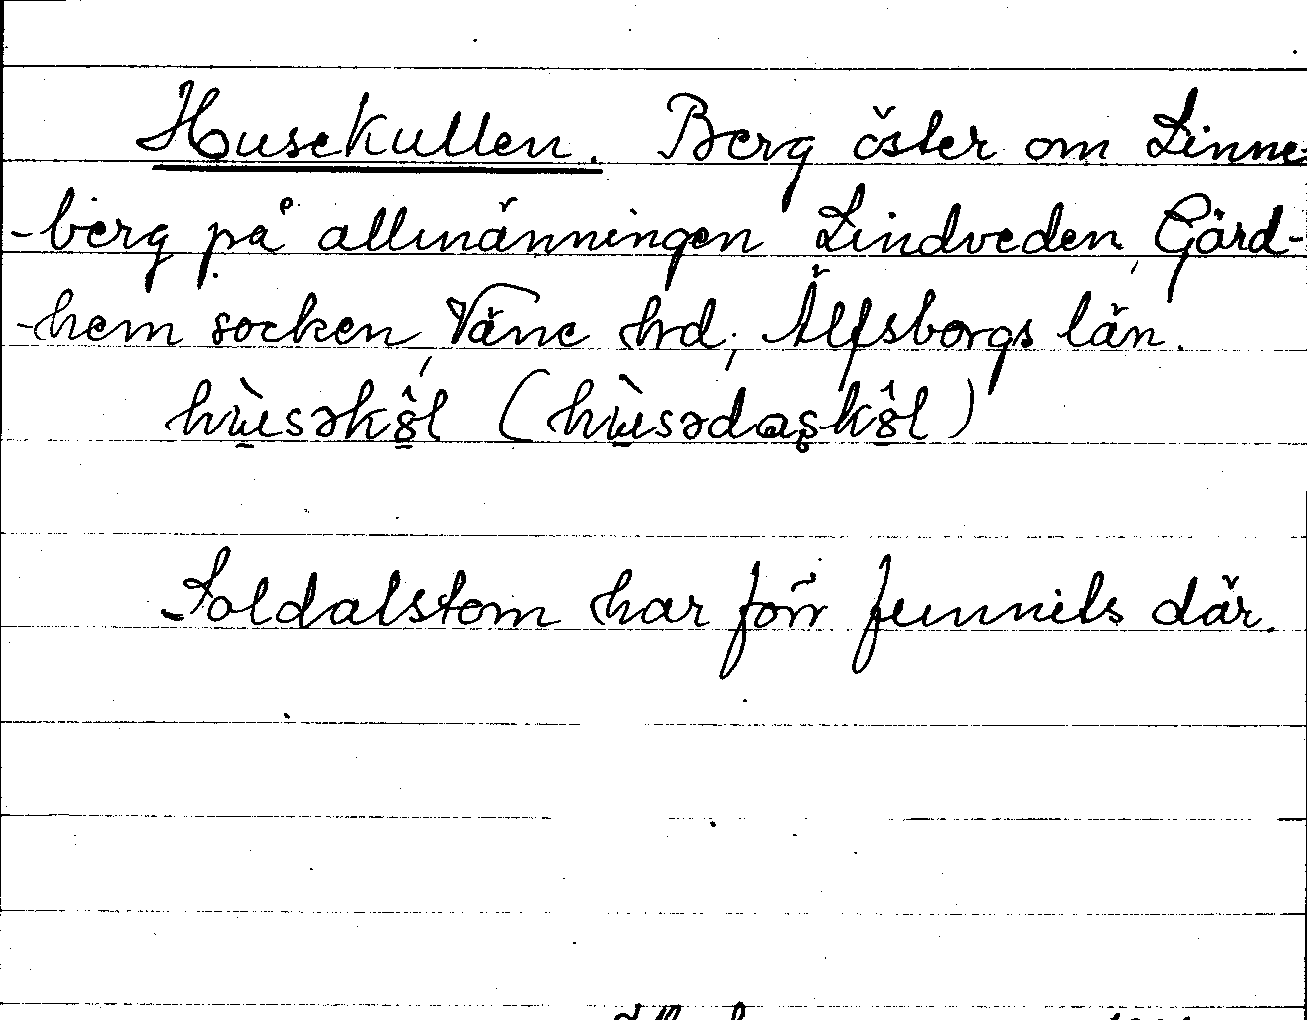 Husekullen. Berg öster om Linne-
-berg på allmänningen Lindveden, Gärd-
-hem socken, Väne hd, Älfsborgs län.
hùsəkôl (hùsədaşkôl)
Soldatstom har förr funnits där.